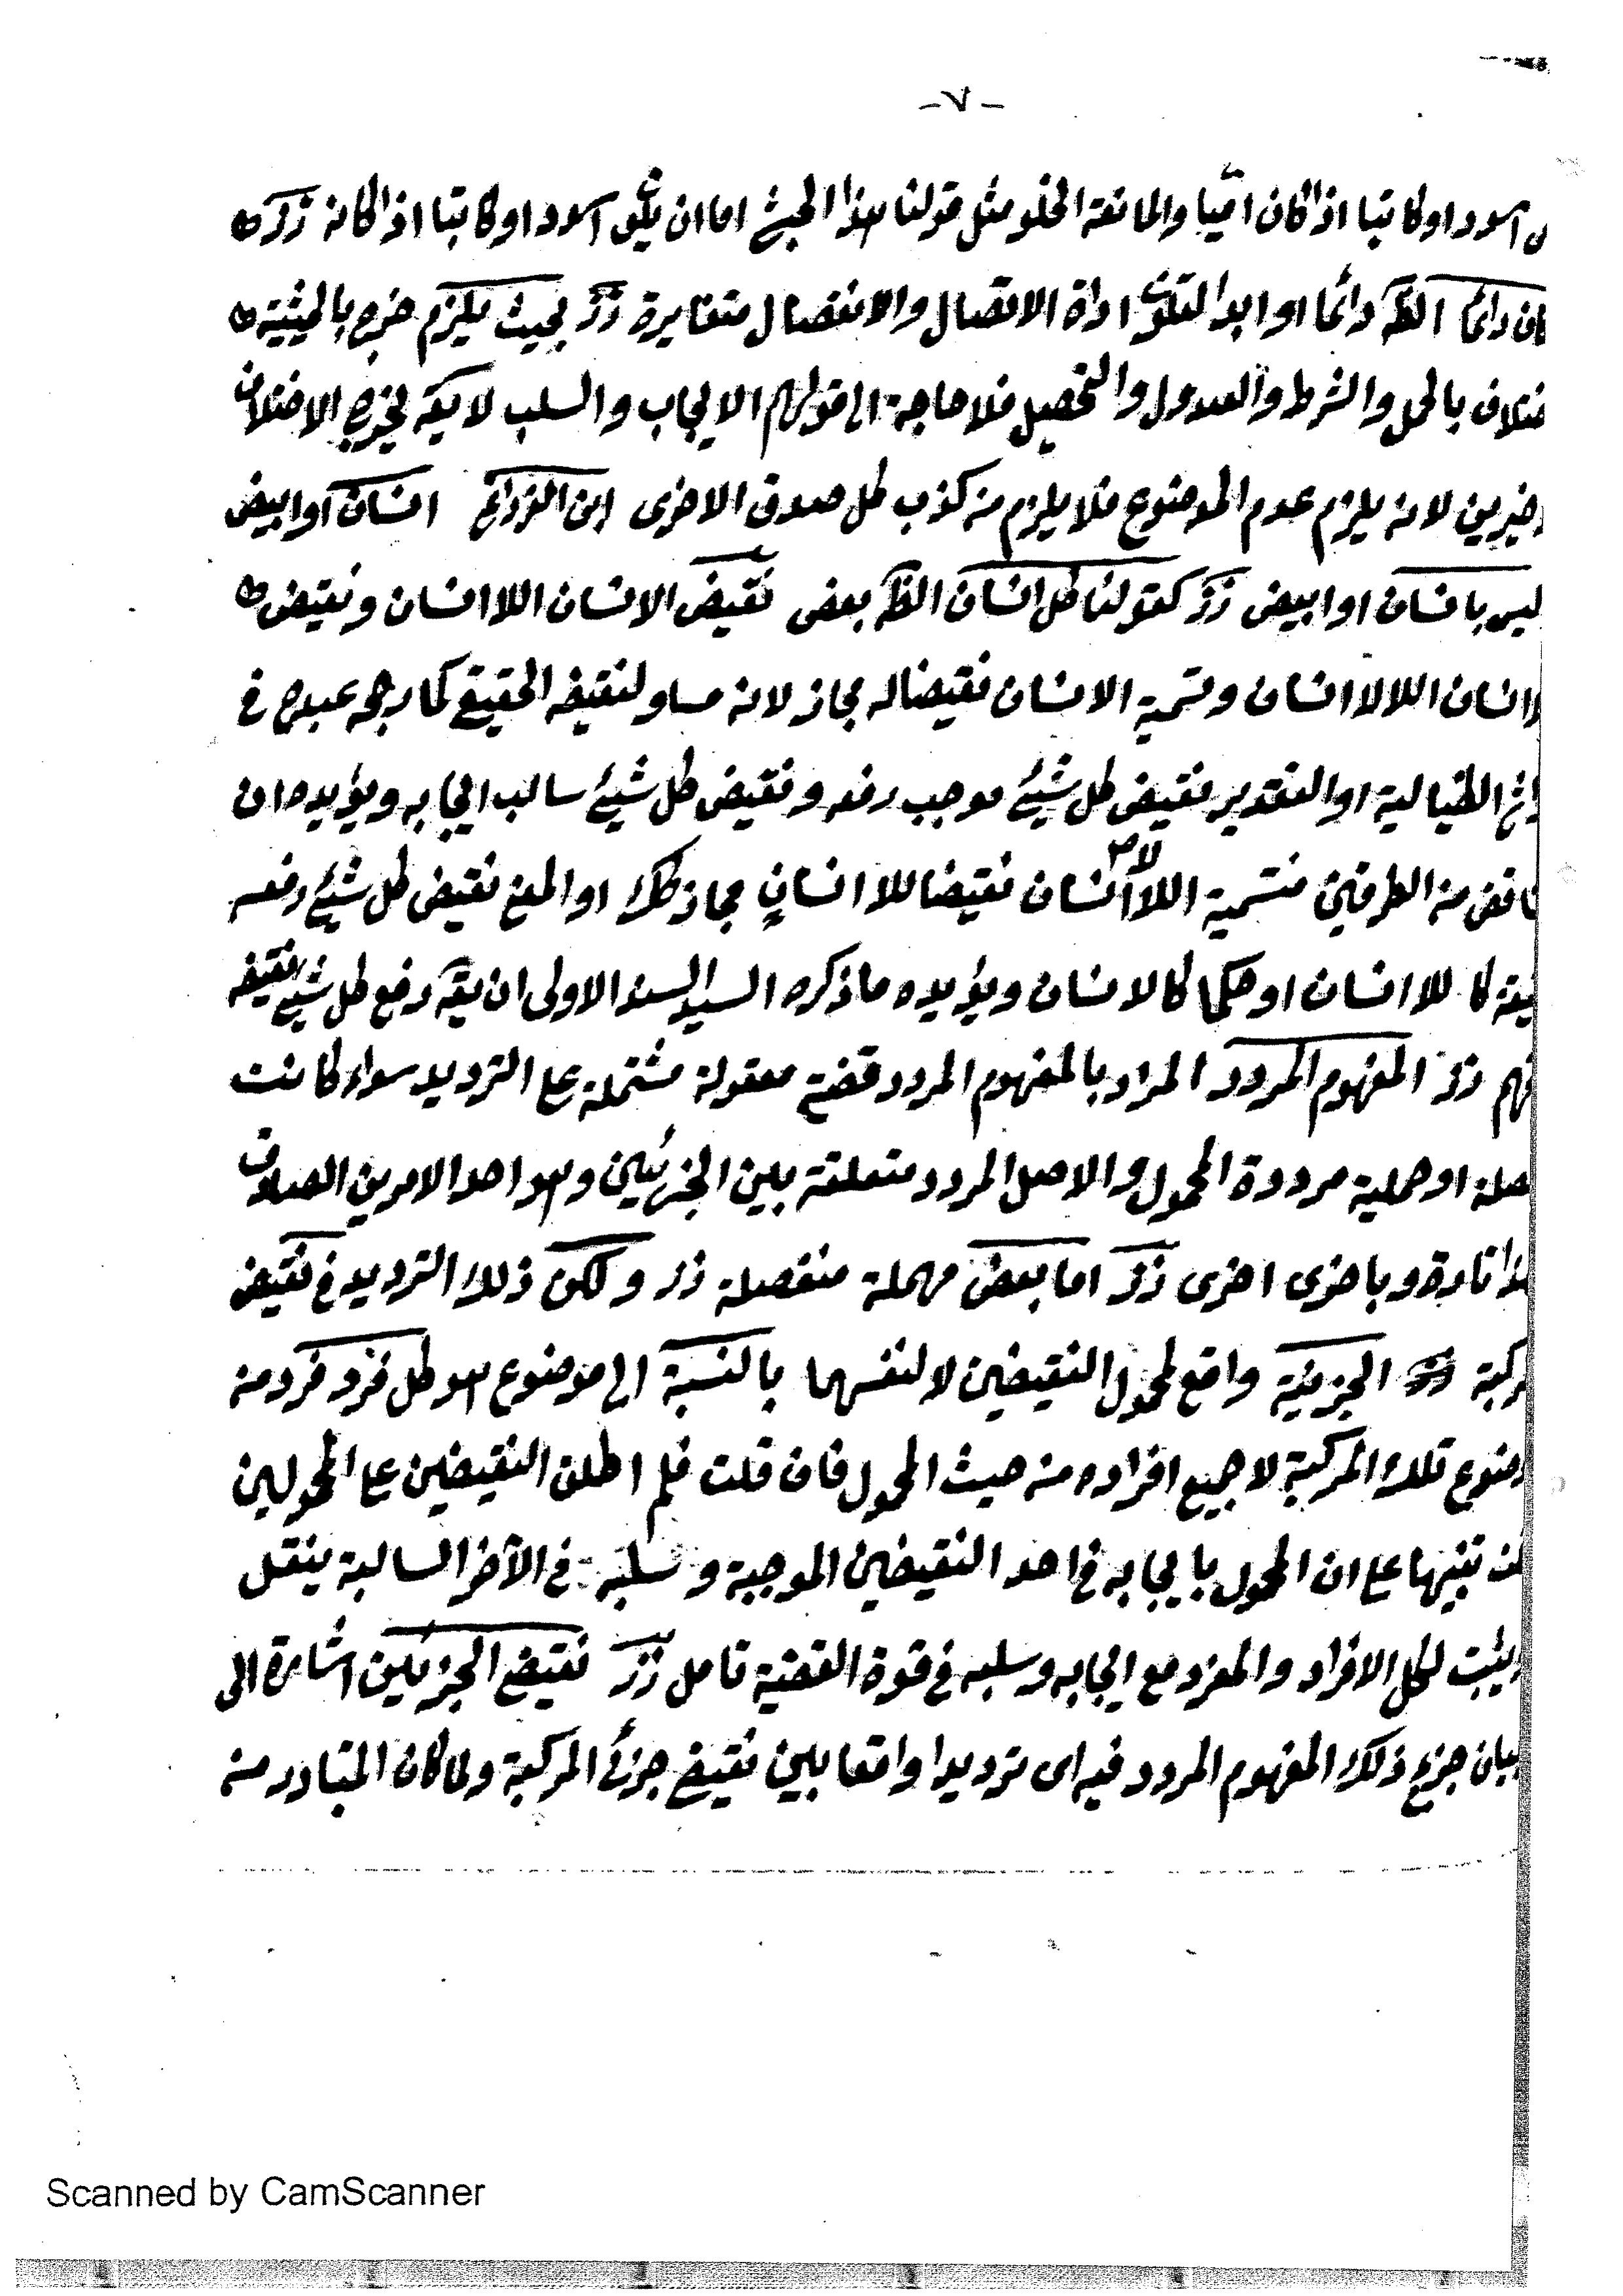 -٧-
اسود او كاتبا اذا كان اميا والمانعة الخلو مثل قولنا هذا الحبشي اما ان يكون اسود او كاتبا اذا كانه زرّ
دائما الظ دائما او ابدا لتكون اداة الاتصال والانفصال متغايرة زرّ بحيث يلزم خرج بالحيثية
بالحمل والشرط والعدول والتحصيل فلا حاجة الى قولهم الايجاب والسلب لا يقه يخرج الاختلاف
لانه يلزم عدم الموضوع فلا يلزم من كذب كل صدق الاخرى انسان او ابيض
بانسان او ابيض زرّ كقولنا كل انسان الظ بعض نقيض الانسان اللاانسان ونقيض
اللالاانسان وتسمية الانسان نقيضا له مجاز لانه مساو لنقيضه الحقيقي كما رجحه عبدح في
الخيالية او التقدير نقيض كل شيئ موجب رفعه ونقيض كل شيئ سالب ايجابه ويؤيده ان
من الطرفين فتسمية اللالاانسان نقيضا للاانسان مجاز كك او المعنى نقيض كل شيئ رفعه
كاللاانسان او حكما كالانسان ويؤيده ما ذكره السيد السند الاولى ان يقه رفع كل شيئ نقيضه
زرّ المفهوم المردد المراد بالمفهوم المردد قضية معقولة مشتملة على الترديد سواء كانت
او حملية مرددة المحمول والاصل المردد متعلقه بين الجزئين وهو احد الامرين الصادق
تارة وباخرى اخرى زرّ اما بعض مهملة منفصلة زر ولكن ذلك الترديد في نقيض
الجزئية واقع لمحمول النقيضين لا لنفسهما بالنسبة الى موضوع هو كل فرد فرد من
تلك المركبة لا جميع افراده من حيث المحمول فان قلت فلم اطلق النقيضين على المحمولين
تنبيها على ان المحمول بايجابه في احد النقيضين الموجبة وسلبه في الآخر السالبة ينقل
لكل الافراد والمفرد مع ايجابه وسلبه في قوة القضية تامل زرّ نقيضي الجزئين اشارة الى
بيان جزئي ذلك المفهوم المردد فيه اى ترديدا واقعا بين نقيضي جزئى المركبة ولما كان المتبادر منه
Scanned by CamScanner